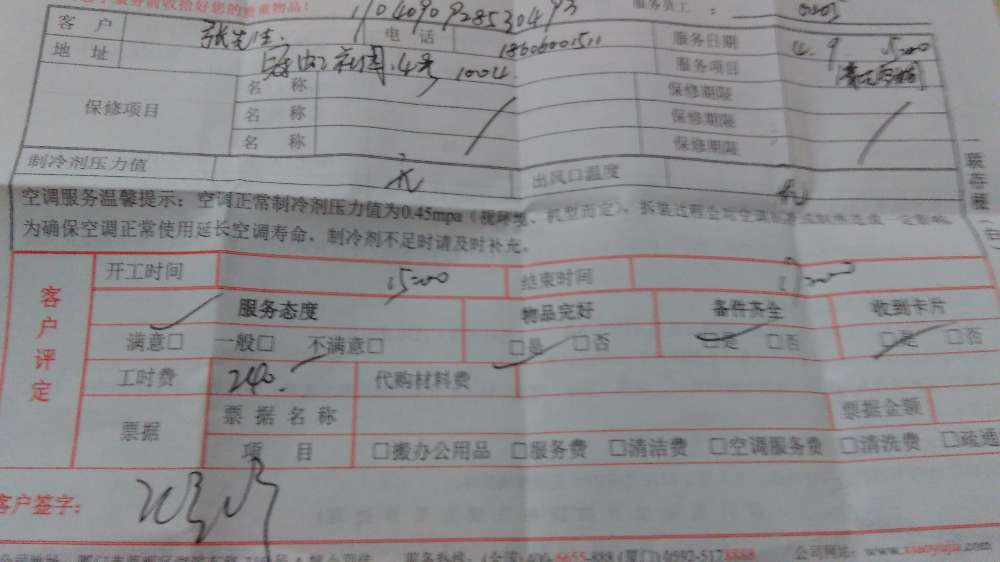 前收拾好您的贵重物品!
1104090928530493
服务员工:
客户 张先生 电话 18606001511 服务日期 4.9 15:00
地址 社园.4号1004 服务项目
保修项目 名称 保修期限
名称 保修期限
名称 保修期限
制冷剂压力值 无 出风口温度 无
空调服务温馨提示:空调正常制冷剂压力值为0.45mpa(视环境、机型而定),拆装过程会对空调
为确保空调正常使用延长空调寿命,制冷剂不足时请及时补充。
客户评定
开工时间 15:00 结束时间 17:00
服务态度 物品完好 备件齐全 收到卡片
满意□ 一般□ 不满意□ □是 □否 □是 □否 □是 □否
工时费 240. 代购材料费
票据 票据名称 票据金额
项目 □搬办公用品 □服务费 □清洁费 □空调服务费 □清洗费 □疏通
客户签字:
公司地址: 服务热线:(全国)400-6655-888 (厦门)0592-5178888 公司网站:www.xiaoyujia.com